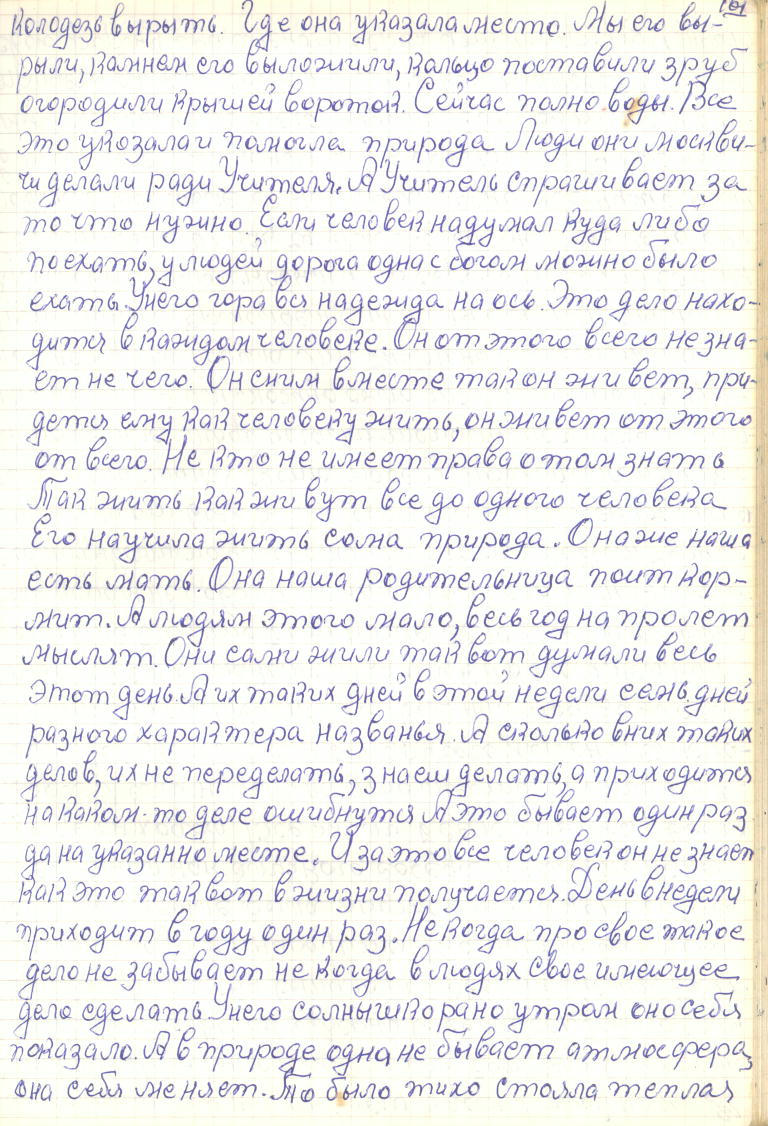 101
колодезь вырыть. Где она указала место. Мы его вы-
рыли, камнем его выложили, кальцо поставили зруб
огородили крышей вороток. Сейчас полно воды. Все
это указала и помогла природа Люди они москви-
чи делали ради Учителя. А Учитель спрашивает за
то что нужно. Если человек надумал куда либо
поехать, у людей дорога одна с богом можно было
ехать. Унего гора вся надежда на ось. Это дело нахо-
дится в каждом человеке. Он от этого всего не зна-
ет не чего. Он сним вместе так он живет, при-
дется ему как человеку жить, он живет от этого
от всего. Не кто не имеет права о том знать
Так жить как живут все до одного человека
Его научила жить сама природа. Она же наша
есть мать. Она наша родительница поит кор-
мит. А людям этого мало, весь год на пролет
мыслят. Они сами жили так вот думали весь
этот день. А их таких дней в этой недели семь дней
разного характера названья А сколько вних таких
делов, их не переделать, знаеш делать, а приходится
на каком-то деле ошибнутся А это бывает один раз
да на указанно месте. И за это все человек он не знает
как это так вот в жизни получается. День внедели
приходит в году один раз. Не когда про свое такое
дело не забывает не когда в людях свое имеющее
дело сделать Унего солнышко рано утром оно себя
показало. А в природе одна не бывает атмосфера,
она себя меняет. То было тихо стояла теплая